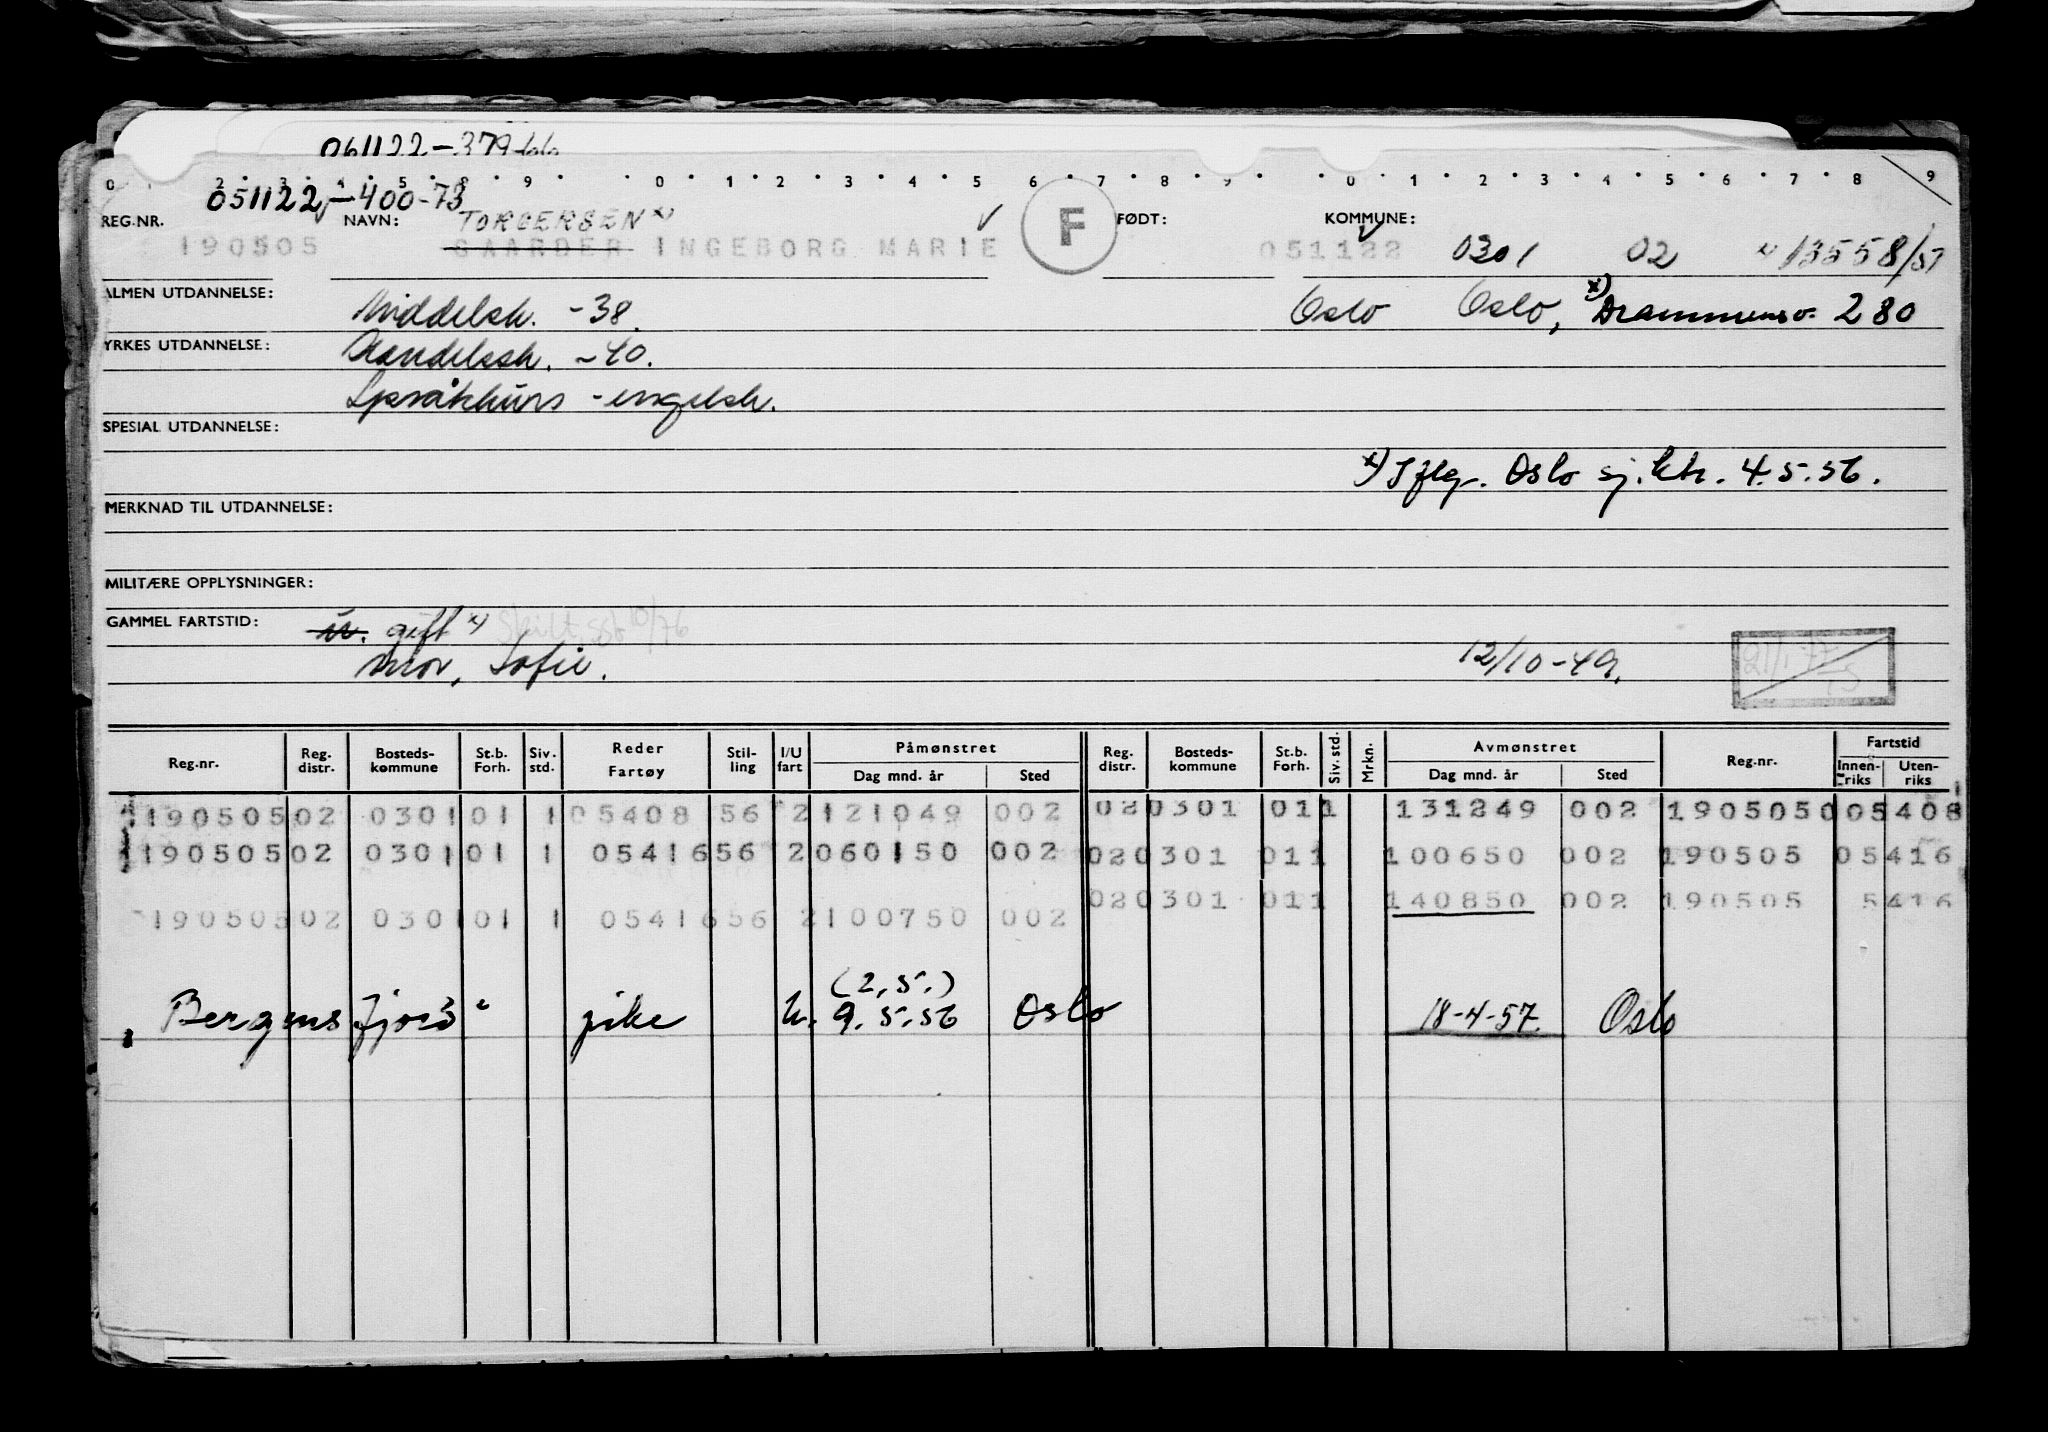 061122-379
0 1 2 3 4 5 8 9 0 1 2 3 4 5 6 7 8 9 0 1 2 3 4 5 6 7 8 9
051122-400-73
REG.NR. NAVN: TORGERSEN x) F FØDT: KOMMUNE:
190505 GAARDER INGEBORG MARIE 051122 0301 02 x) 13558/57
ALMEN UTDANNELSE: Middelsk. -38. Oslo Oslo, x) Drammensv. 280
YRKES UTDANNELSE: Handelssk. -40.
Språkkurs - engelsk.
SPESIAL UTDANNELSE:
x) Iflg. Oslo sj.ktr. 4.5.56.
MERKNAD TIL UTDANNELSE:
MILITÆRE OPPLYSNINGER:
GAMMEL FARTSTID: u. gift x) Skilt, 10/76
Mor, Sofie. 12/10-49.
Reg.nr. Reg. distr. Bosteds-kommune St.b. Forh. Siv. std. Reder Fartøy Stil-ling I/U fart Påmønstret Dag mnd. år Sted Reg. distr. Bosteds-kommune St.b. Forh. Siv. std. Mrkn. Avmønstret Dag mnd. år Sted Reg.nr. Fartstid Innen-riks Uten-riks
190505 02 0301 01 1 05408 56 2 121049 002 02 0301 01 1 131249 002 190505 005408
190505 02 0301 01 1 05416 56 2 060150 002 02 0301 01 1 100650 002 190505 05416
02 0301 01 1 140850 002 190505 5416
190505 02 0301 01 1 05416 56 2 100750 002
(2.5.)
"Bergensfjord" pike U. 9.5.56 Oslo 18-4-57. Oslo